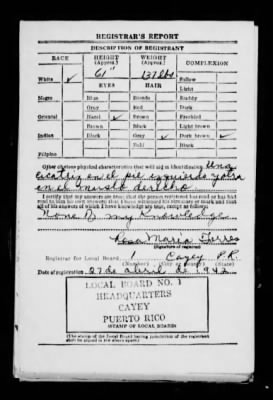 REGISTRAR'S REPORT
DESCRIPTION OF REGISTRANT
RACE HEIGHT (Approx.) WEIGHT (Approx.) COMPLEXION
White ✓ 61" 137 lbs. Sallow
EYES HAIR Light
Negro Blue Blonde Ruddy
Gray Red Dark
Oriental Hazel ✓ Brown Freckled
Brown Black Light brown
Indian Black Gray ✓ Dark brown ✓
Bald Black
Filipino
Other obvious physical characteristics that will aid in identification Una
cicatriz en el pie izquierdo y otra
en el muslo derecho
I certify that my answers are true; that the person registered has read or has had
read to him his own answers; that I have witnessed his signature or mark and that
all of his answers of which I have knowledge are true, except as follows:
None of my Knowledge
Rosa Maria Torres
(Signature of registrar)
Registrar for Local Board 1 Cayey P.R.
(Number) (City or county) (State)
Date of registration 27 de abril de 1942
LOCAL BOARD NO. 1
HEADQUARTERS
CAYEY
PUERTO RICO
(STAMP OF LOCAL BOARD)
(The stamp of the Local Board having jurisdiction of the registrant
shall be placed in the above space.)